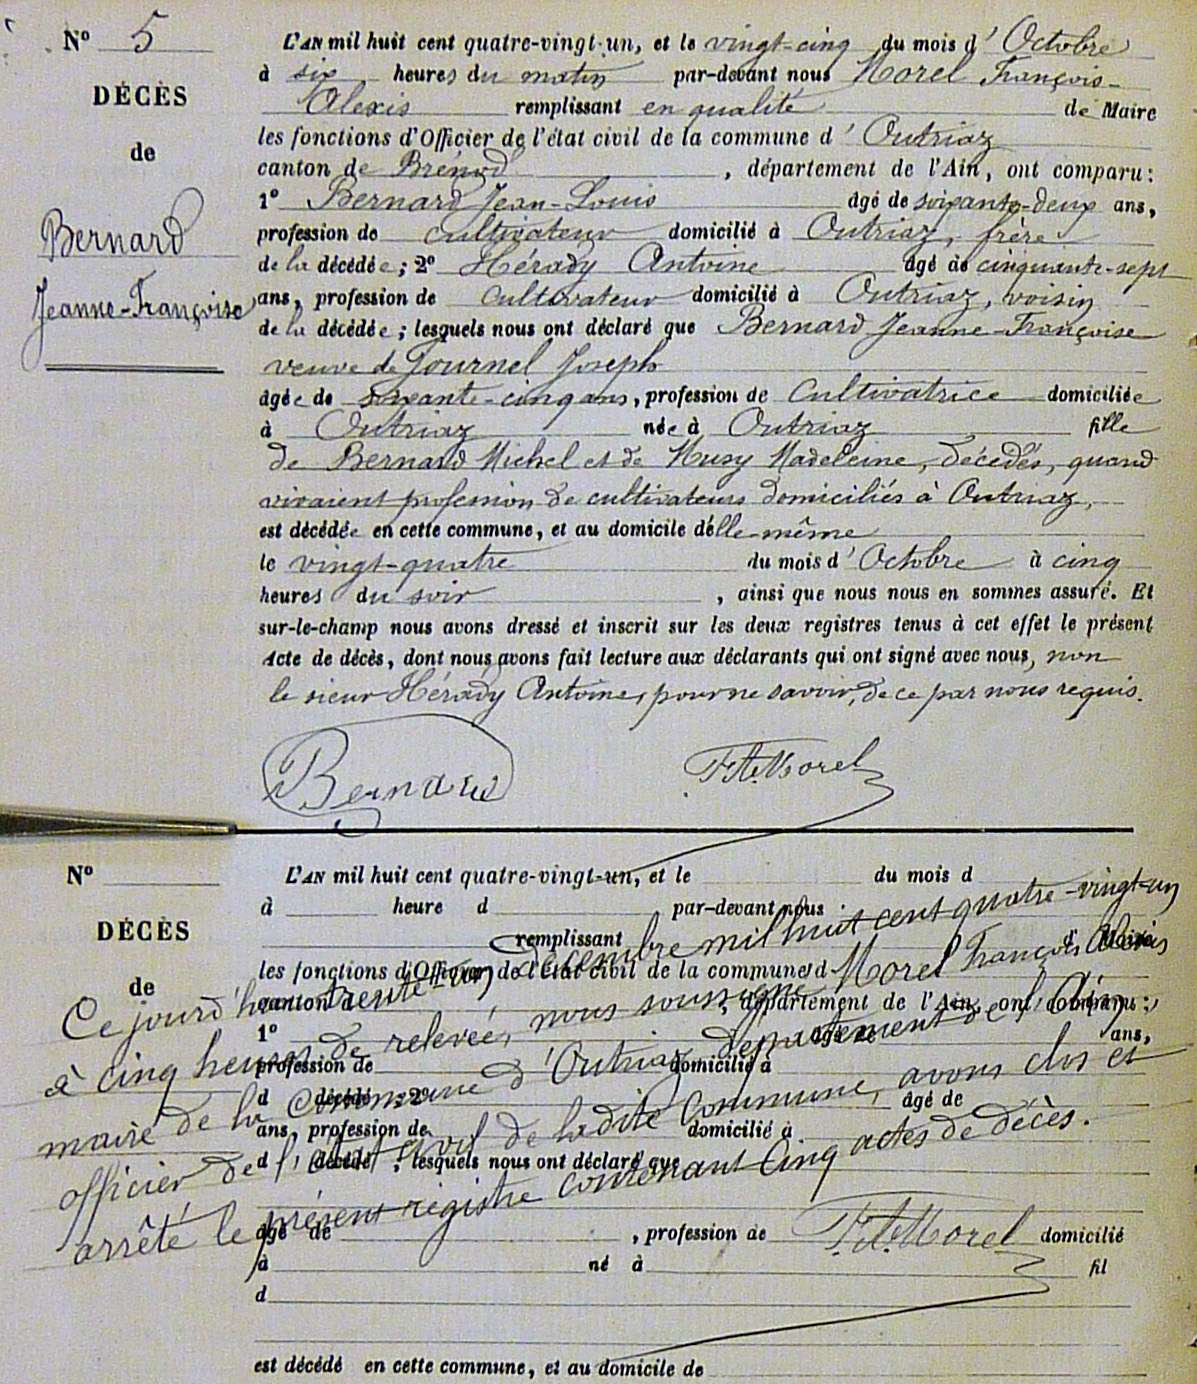 N° 5
DÉCÈS
de
Bernard
Jeanne-Françoise
L'AN mil huit cent quatre-vingt-un, et le vingt-cinq du mois d'Octobre
à six heures du matin par-devant nous Morel François-
Alexis remplissant en qualité de Maire
les fonctions d'Officier de l'état civil de la commune d'Outriaz
canton de Brénod, département de l'Ain, ont comparu:
1° Bernard Jean-Louis âgé de soixante-deux ans,
profession de cultivateur domicilié à Outriaz, frère
de la décédée; 2° Hérady Antoine âgé de cinquante-sept
ans, profession de cultivateur domicilié à Outriaz, voisin
de la décédée; lesquels nous ont déclaré que Bernard Jeanne-Françoise
veuve de Gournel Joseph
âgée de soixante-cinq ans, profession de Cultivatrice domiciliée
à Outriaz née à Outriaz fille
de Bernard Michel et de Musy Madeleine, décédés, quand
vivaient profession de cultivateurs domiciliés à Outriaz,
est décédée en cette commune, et au domicile d'elle-même
le vingt-quatre du mois d'Octobre à cinq
heures du soir, ainsi que nous nous en sommes assuré. Et
sur-le-champ nous avons dressé et inscrit sur les deux registres tenus à cet effet le présent
Acte de décès, dont nous avons fait lecture aux déclarants qui ont signé avec nous, non
le sieur Hérady Antoine, pour ne savoir, de ce par nous requis.
Bernard
F. A. Morel
N°
DÉCÈS
de
L'AN mil huit cent quatre-vingt-un, et le du mois d
à heure d par-devant nous
remplissant d Maire
les fonctions d'Officier de l'état civil de la commune d
canton d, département de l'Ain, ont comparu:
1° âgé de ans,
profession de domicilié à
d décédé; 2° âgé de
ans, profession de domicilié à
d décédé; lesquels nous ont déclaré que
âgé de, profession de domicilié
à né à fil
d
est décédé en cette commune, et au domicile de
Ce jourd'hui trente-un décembre mil huit cent quatre-vingt-un
à cinq heures de relevée, nous soussigné Morel François Alexis
maire de la Commune d'Outriaz, département de l'Ain,
officier de l'état civil de la dite Commune, avons clos et
arrêté le présent registre contenant Cinq actes de décès.
F. A. Morel